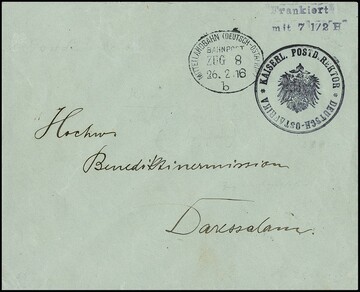 Frankiert
mit 7 1/2 H
MITTELLANDBAHN (DEUTSCH-OSTAFRIKA)
BAHNPOST
ZUG 8
26. 2. 16
b
* KAISERL. POSTDIREKTOR *
DEUTSCH-OSTAFRIKA
Hochw.
Benediktinermission
Daressalam.